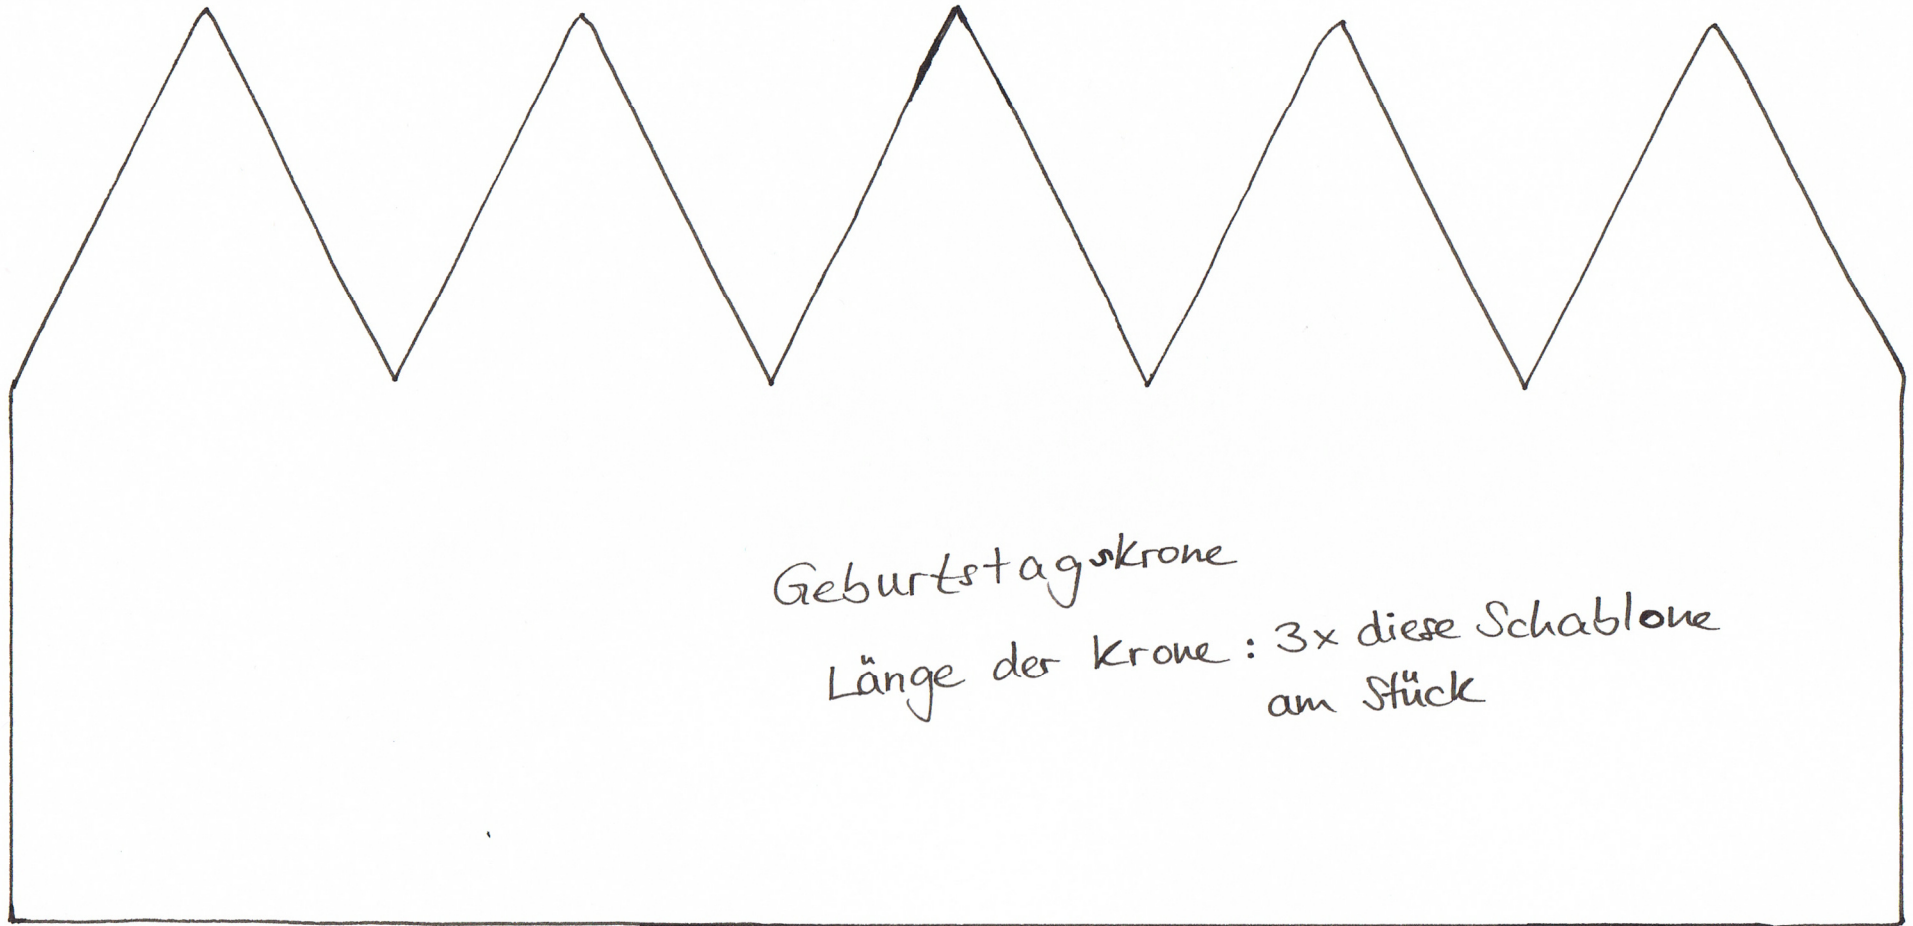 Geburtstagskrone
Länge der Krone : 3x diese Schablone
am Stück